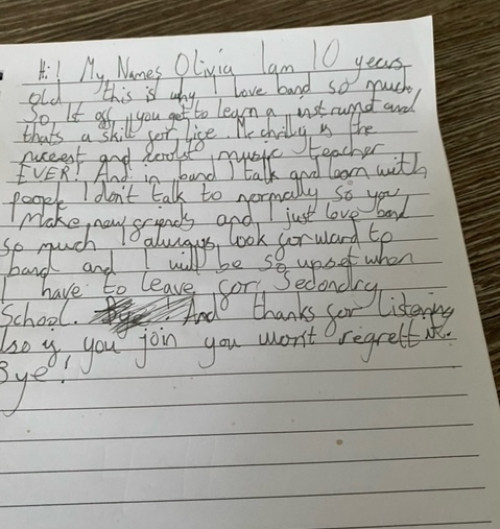 Hi! My Names Olivia I am 10 years
old this is why I love band so much,
So 1st of, you get to learn a instrument and
thats a skill for life. is the
nicest and music teacher
EVER! And in band I talk and learn with
people I don't talk to normally so you
Make new friends and I just love band
so much I always look forward to
band and I will be so upset when
I have to leave for Secondry
School. And thanks for listening
so if you join you won't regrett it.
Bye!